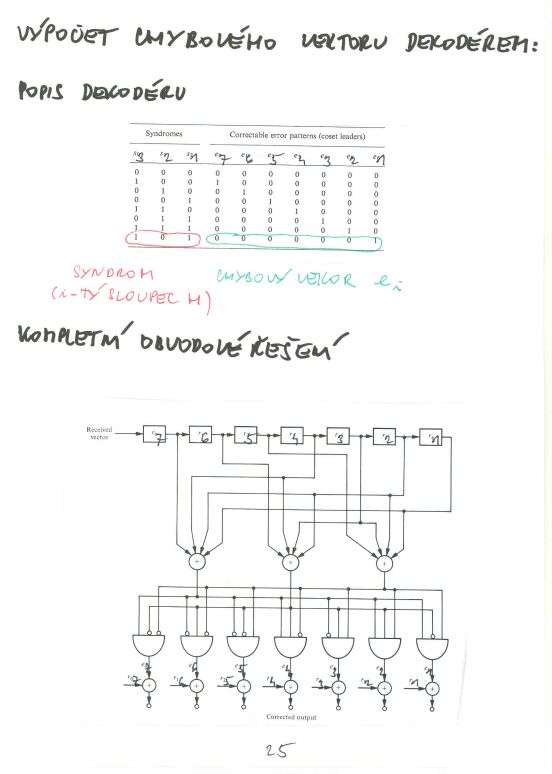 VÝPOČET CHYBOVÉHO VEKTORU DEKODÉREM:
POPIS DEKODÉRU
Syndromes Correctable error patterns (coset leaders)
s3 s2 s1 e7 e6 e5 e4 e3 e2 e1
0 0 0 0 0 0 0 0 0 0
1 0 0 1 0 0 0 0 0 0
0 1 0 0 1 0 0 0 0 0
0 0 1 0 0 1 0 0 0 0
1 1 0 0 0 0 1 0 0 0
0 1 1 0 0 0 0 1 0 0
1 1 1 0 0 0 0 0 1 0
1 0 1 0 0 0 0 0 0 1
SYNDROM CHYBOVÝ VEKTOR ei
(i-TÝ SLOUPEC H)
KOMPLETNÍ OBVODOVÉ ŘEŠENÍ
Received
vector
r7 r6 r5 r4 r3 r2 r1
+ + +
e7 e6 e5 e4 e3 e2 e1
r7 + r6 + r5 + r4 + r3 + r2 + r1 +
Corrected output
25